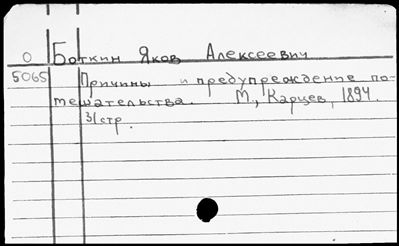 О Боткин Яков Алексеевич
5065 Причины и предупреждение по-
мешательства. М., Карцев, 1894.
31стр.